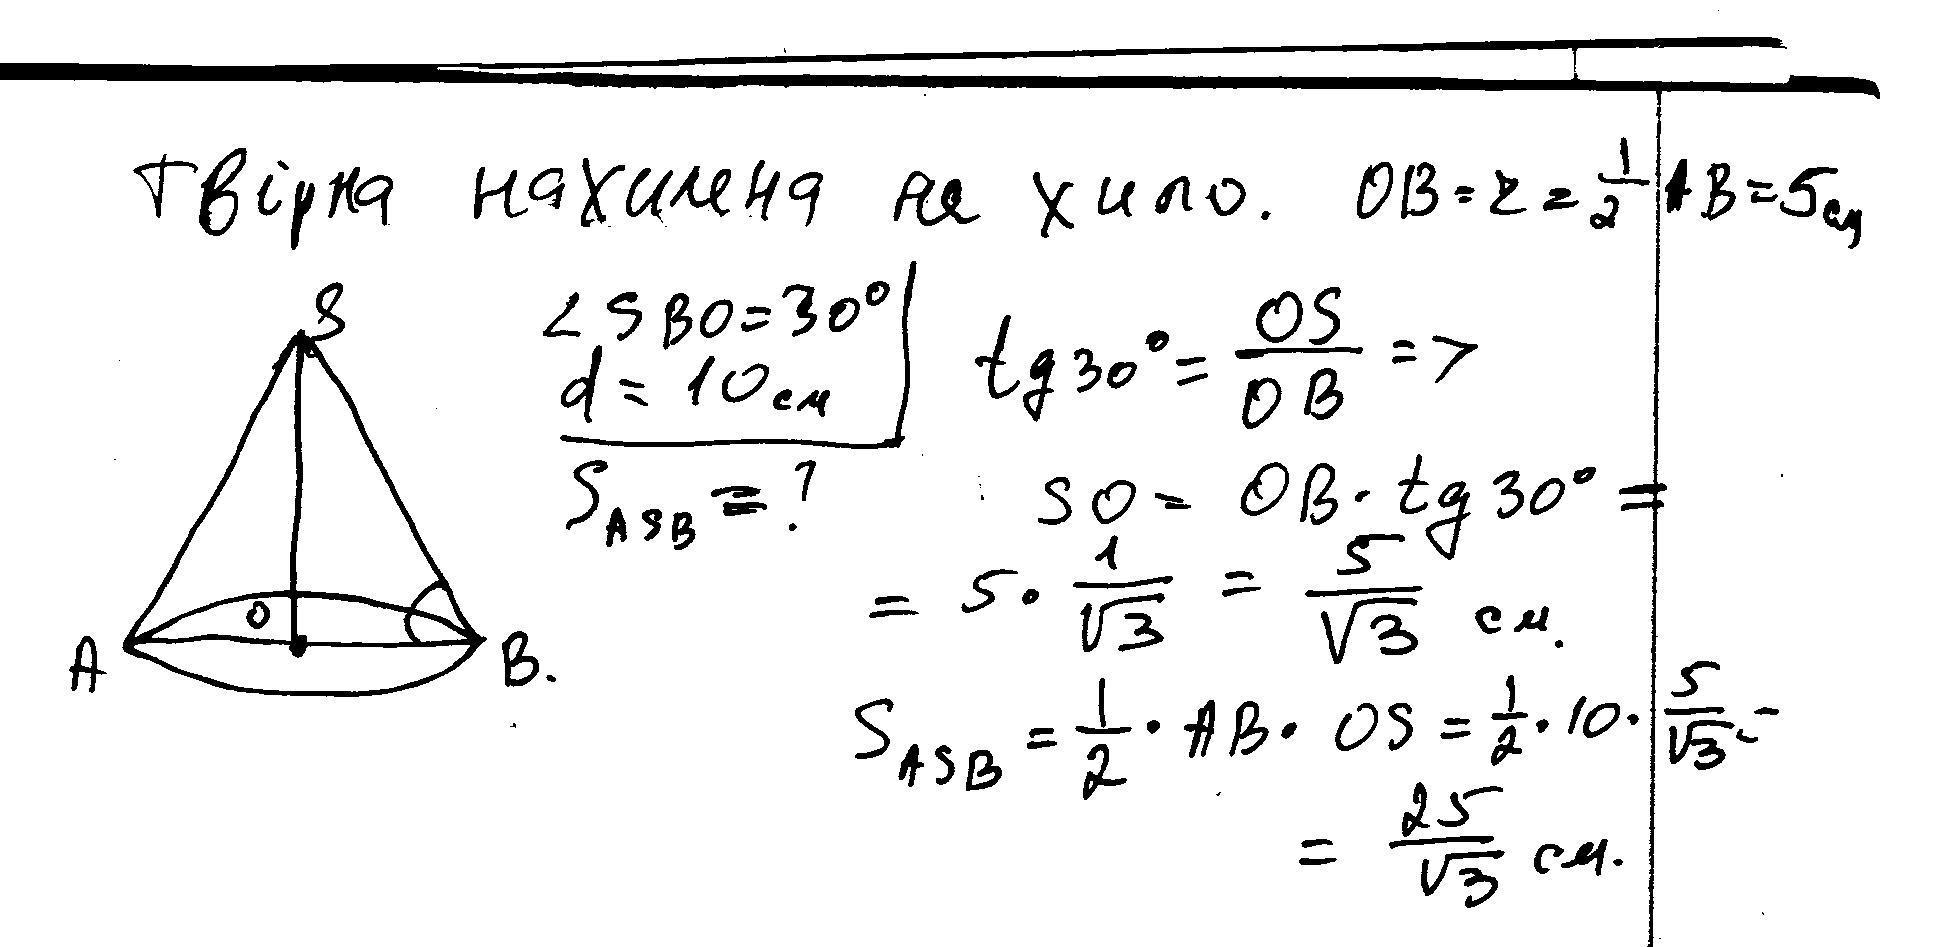 Твірна нахилена не хило. OB = r = 1/2 AB = 5 см
S
∠SBO = 30°
d = 10 см
S_ASB = ?
tg 30° = OS/OB =>
SO = OB · tg 30° =
= 5 · 1/√3 = 5/√3 см.
O
A
B.
S_ASB = 1/2 · AB · OS = 1/2 · 10 · 5/√3 =
= 25/√3 см.